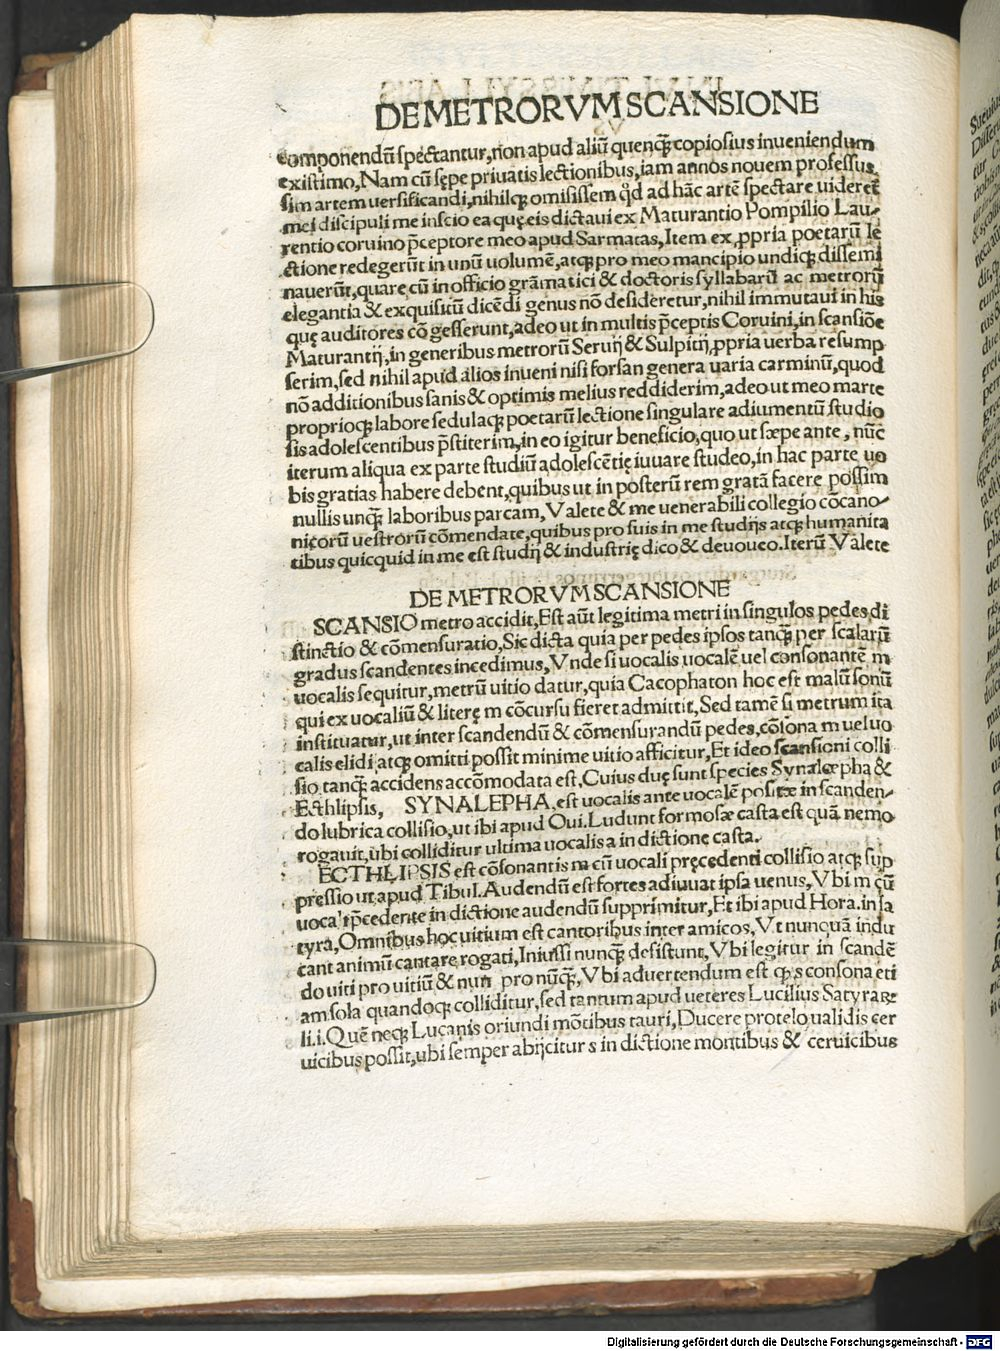 DE METRORVM SCANSIONE
componendũ spectantur, non apud aliũ quenq̃ȝ copiosius inueniendum
existimo, Nam cũ sępe priuatis lectionibus, iam annos nouem professus
sim artem uersificandi, nihilqȝ omisissem q̊d ad hãc artẽ spectare uideret̃
mei discipuli me inscio ea quę eis dictaui ex Maturantio Pompilio Lau⸗
rentio coruino p̃ceptore meo apud Sarmatas, Item ex ꝓpria poetarũ le
ctione redegerũt in unũ uolumẽ, atqȝ pro meo mancipio undiqȝ dissemi
nauerũt, quare cũ in officio grãmatici & doctoris syllabarũ ac metrorũ
elegantia & exquisitũ dicẽdi genus nõ desideretur, nihil immutaui in his
quę auditores cõgesserunt, adeo ut in multis p̃ceptis Coruini, in scansiõe
Maturantij, in generibus metrorũ Seruij & Sulpitij, ꝓpria uerba resump
serim, sed nihil apud alios inueni nisi forsan genera uaria carminũ, quod
nõ additionibus sanis & optimis melius reddiderim, adeo ut meo marte
proprioqȝ labore sedulaqȝ poetarũ lectione singulare adiumentũ studio
sis adolescentibus p̃stiterim, in eo igitur beneficio, quo ut sæpe ante, nũc
iterum aliqua ex parte studiũ adolescẽtię iuuare studeo, in hac parte uo
bis gratias habere debent, quibus ut in posterũ rem gratã facere possim
nullis unq̃ȝ laboribus parcam, Valete & me uenerabili collegio cõcano⸗
nicorũ uestrorũ cõmendate, quibus pro suis in me studijs atqȝ humanita
tibus quicquid in me est studij & industrię dico & deuoueo. Iterũ Valete
DE METRORVM SCANSIONE
SCANSIO metro accidit, Est aũt legitima metri in singulos pedes di
stinctio & cõmensuratio, Sic dicta quia per pedes ipsos tanq̃ȝ per scalarũ
gradus scandentes incedimus, Vnde si uocalis uocalẽ uel consonantẽ m
uocalis sequitur, metrũ uitio datur, quia Cacophaton hoc est malũ sonũ
qui ex uocaliũ & literę m cõcursu fieret admittit, Sed tamẽ si metrum ita
instituatur, ut inter scandendũ & cõmensurandũ pedes, cõsona m uel uo
calis elidi atqȝ omitti possit minime uitio afficitur, Et ideo scansioni colli
sio tanq̃ȝ accidens accõmodata est, Cuius duę sunt species Synalœpha &
Ecthlipsis, SYNALEPHA est uocalis ante uocalẽ positæ in scanden⸗
do lubrica collisio, ut ibi apud Oui. Ludunt formosæ casta est quã nemo
rogauit, ubi colliditur ultima uocalis a in dictione casta.
ECTHLIPSIS est cõsonantis m cũ uocali pręcedenti collisio atqȝ sup
pressio ut apud Tibul. Audendũ est fortes adiuuat ipsa uenus, Vbi m cũ
uocali p̃cedente in dictione audendũ supprimitur, Et ibi apud Hora. in sa
tyra, Omnibus hoc uitium est cantoribus inter amicos, Vt nunquã indu
cant animũ cantare rogati, Iniussi nunq̃ȝ desistunt, Vbi legitur in scandẽ
do uiti pro uitiũ & nun pro nũq̃ȝ, Vbi aduertendum est qȝ s consona eti
am sola quandoqȝ colliditur, sed tantum apud ueteres Lucilius Satyraꝝ
li.i. Quẽ neqȝ Lucanis oriundi mõtibus tauri, Ducere protelo ualidis cer
uicibus possit, ubi semper abijcitur s in dictione montibus & ceruicibus
Digitalisierung gefördert durch die Deutsche Forschungsgemeinschaft - DFG